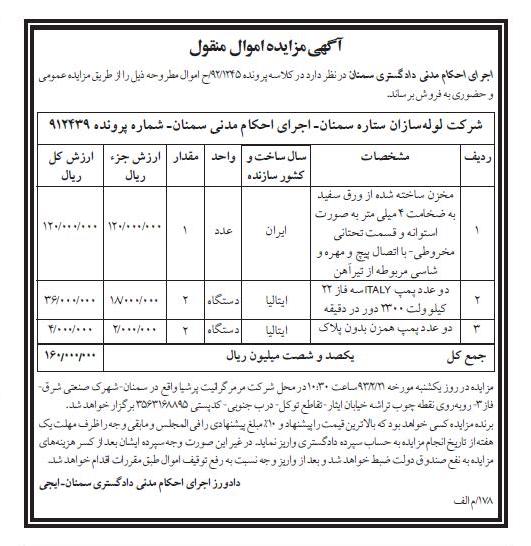 آگهی مزایده اموال منقول
اجرای احکام مدنی دادگستری سمنان در نظر دارد در کلاسه پرونده ۹۲/۱۲۴۵/ح اموال مطروحه ذیل را از طریق مزایده عمومی
و حضوری به فروش برساند.
شرکت لوله‌سازان ستاره سمنان- اجرای احکام مدنی سمنان- شماره پرونده ۹۱۲۴۳۹
ردیف مشخصات سال ساخت و کشور سازنده واحد مقدار ارزش جزء ریال ارزش کل ریال
۱ مخزن ساخته شده از ورق سفید ایران عدد ۱ ۱۲۰/۰۰۰/۰۰۰ ۱۲۰/۰۰۰/۰۰۰
به ضخامت ۴ میلی متر به صورت
استوانه و قسمت تحتانی
مخروطی- با اتصال پیچ و مهره و
شاسی مربوطه از تیرآهن
۲ دو عدد پمپ ITALY سه فاز ۲۲ ایتالیا دستگاه ۲ ۱۸/۰۰۰/۰۰۰ ۳۶/۰۰۰/۰۰۰
کیلو ولت ۲۳۰۰ دور در دقیقه
۳ دو عدد پمپ همزن بدون پلاک ایتالیا دستگاه ۲ ۲/۰۰۰/۰۰۰ ۴/۰۰۰/۰۰۰
جمع کل یکصد و شصت میلیون ریال ۱۶۰/۰۰۰/۰۰۰
مزایده در روز یکشنبه مورخه ۹۳/۲/۲۱ ساعت ۱۰:۳۰ در محل شرکت مرمر گرانیت پرشیا واقع در سمنان- شهرک صنعتی شرق-
فاز ۳- روبه‌روی نقطه چوب تراشه خیابان ایثار- تقاطع توکل- درب جنوبی- کدپستی ۳۵۶۳۱۶۸۸۹۵ برگزار خواهد شد.
برنده مزایده کسی خواهد بود که بالاترین قیمت را پیشنهاد و ۱۰٪ مبلغ پیشنهادی را فی المجلس و مابقی وجه را ظرف مهلت یک
هفته از تاریخ انجام مزایده به حساب سپرده دادگستری واریز نماید. در غیر این صورت وجه سپرده ایشان بعد از کسر هزینه‌های
مزایده به نفع صندوق دولت ضبط خواهد شد و بعد از واریز وجه نسبت به رفع توقیف اموال طبق مقررات اقدام خواهد شد.
دادورز اجرای احکام مدنی دادگستری سمنان- ایجی
۱۷۸/م الف